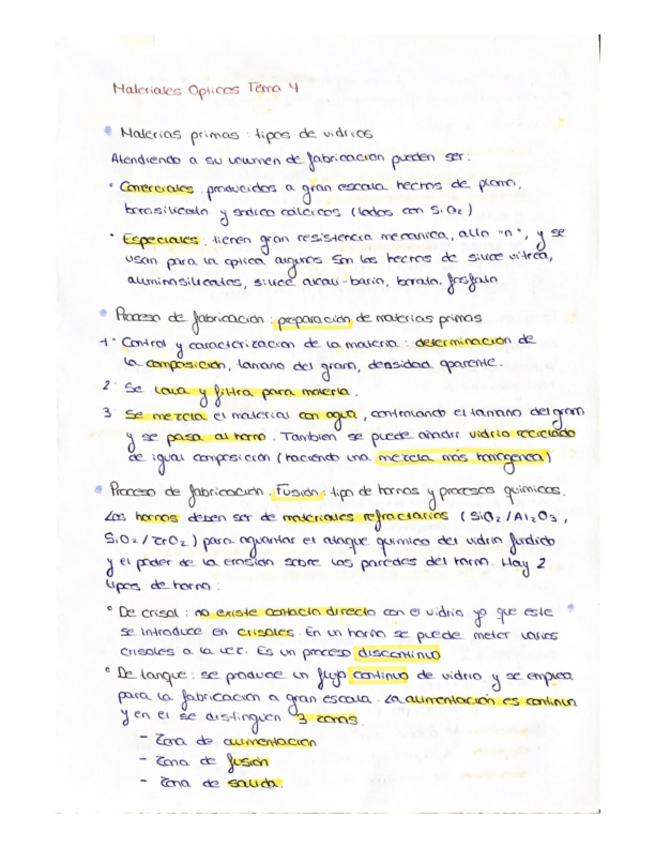 Materiales Opticos Tema 4
Materias primas: tipos de vidrios
Atendiendo a su volumen de fabricacion pueden ser:
· Comerciales: producidos a gran escala hechos de plomo,
borosilicato y sodico calcicos (todos con SiO2)
· Especiales: tienen gran resistencia mecanica, alto "n", y se
usan para la optica algunos son los hechos de silice vitrea,
aluminosilicatos, silice alcali-bario, borato, fosfato
Proceso de fabricación: preparación de materias primas
1· Control y caracterizacion de la materia: determinacion de
la composición, tamano del grano, densidad aparente.
2· Se lava y filtra para molerla.
3 Se mezcla el material con agua, controlando el tamano del grano
y se pasa al horno. Tambien se puede añadir vidrio reciclado
de igual composición (haciendo una mezcla más homogenea)
Proceso de fabricación. Fusión: tipo de hornos y procesos quimicos.
Los hornos deben ser de materiales refractarios (SiO2/Al2O3,
SiO2/ZrO2) para aguantar el ataque quimico del vidrio fundido
y el poder de la erosión sobre las paredes del horno. Hay 2
tipos de horno:
° De crisol: no existe contacto directo con el vidrio ya que este
se introduce en crisoles. En un horno se puede meter varios
crisoles a la vez. Es un proceso discontinuo
° De tanque: se produce un flujo continuo de vidrio y se emplea
para la fabricacion a gran escala. La alimentación es continua
y en el se distinguen 3 zonas
- Zona de alimentacion
- Zona de fusión
- Zona de salida.